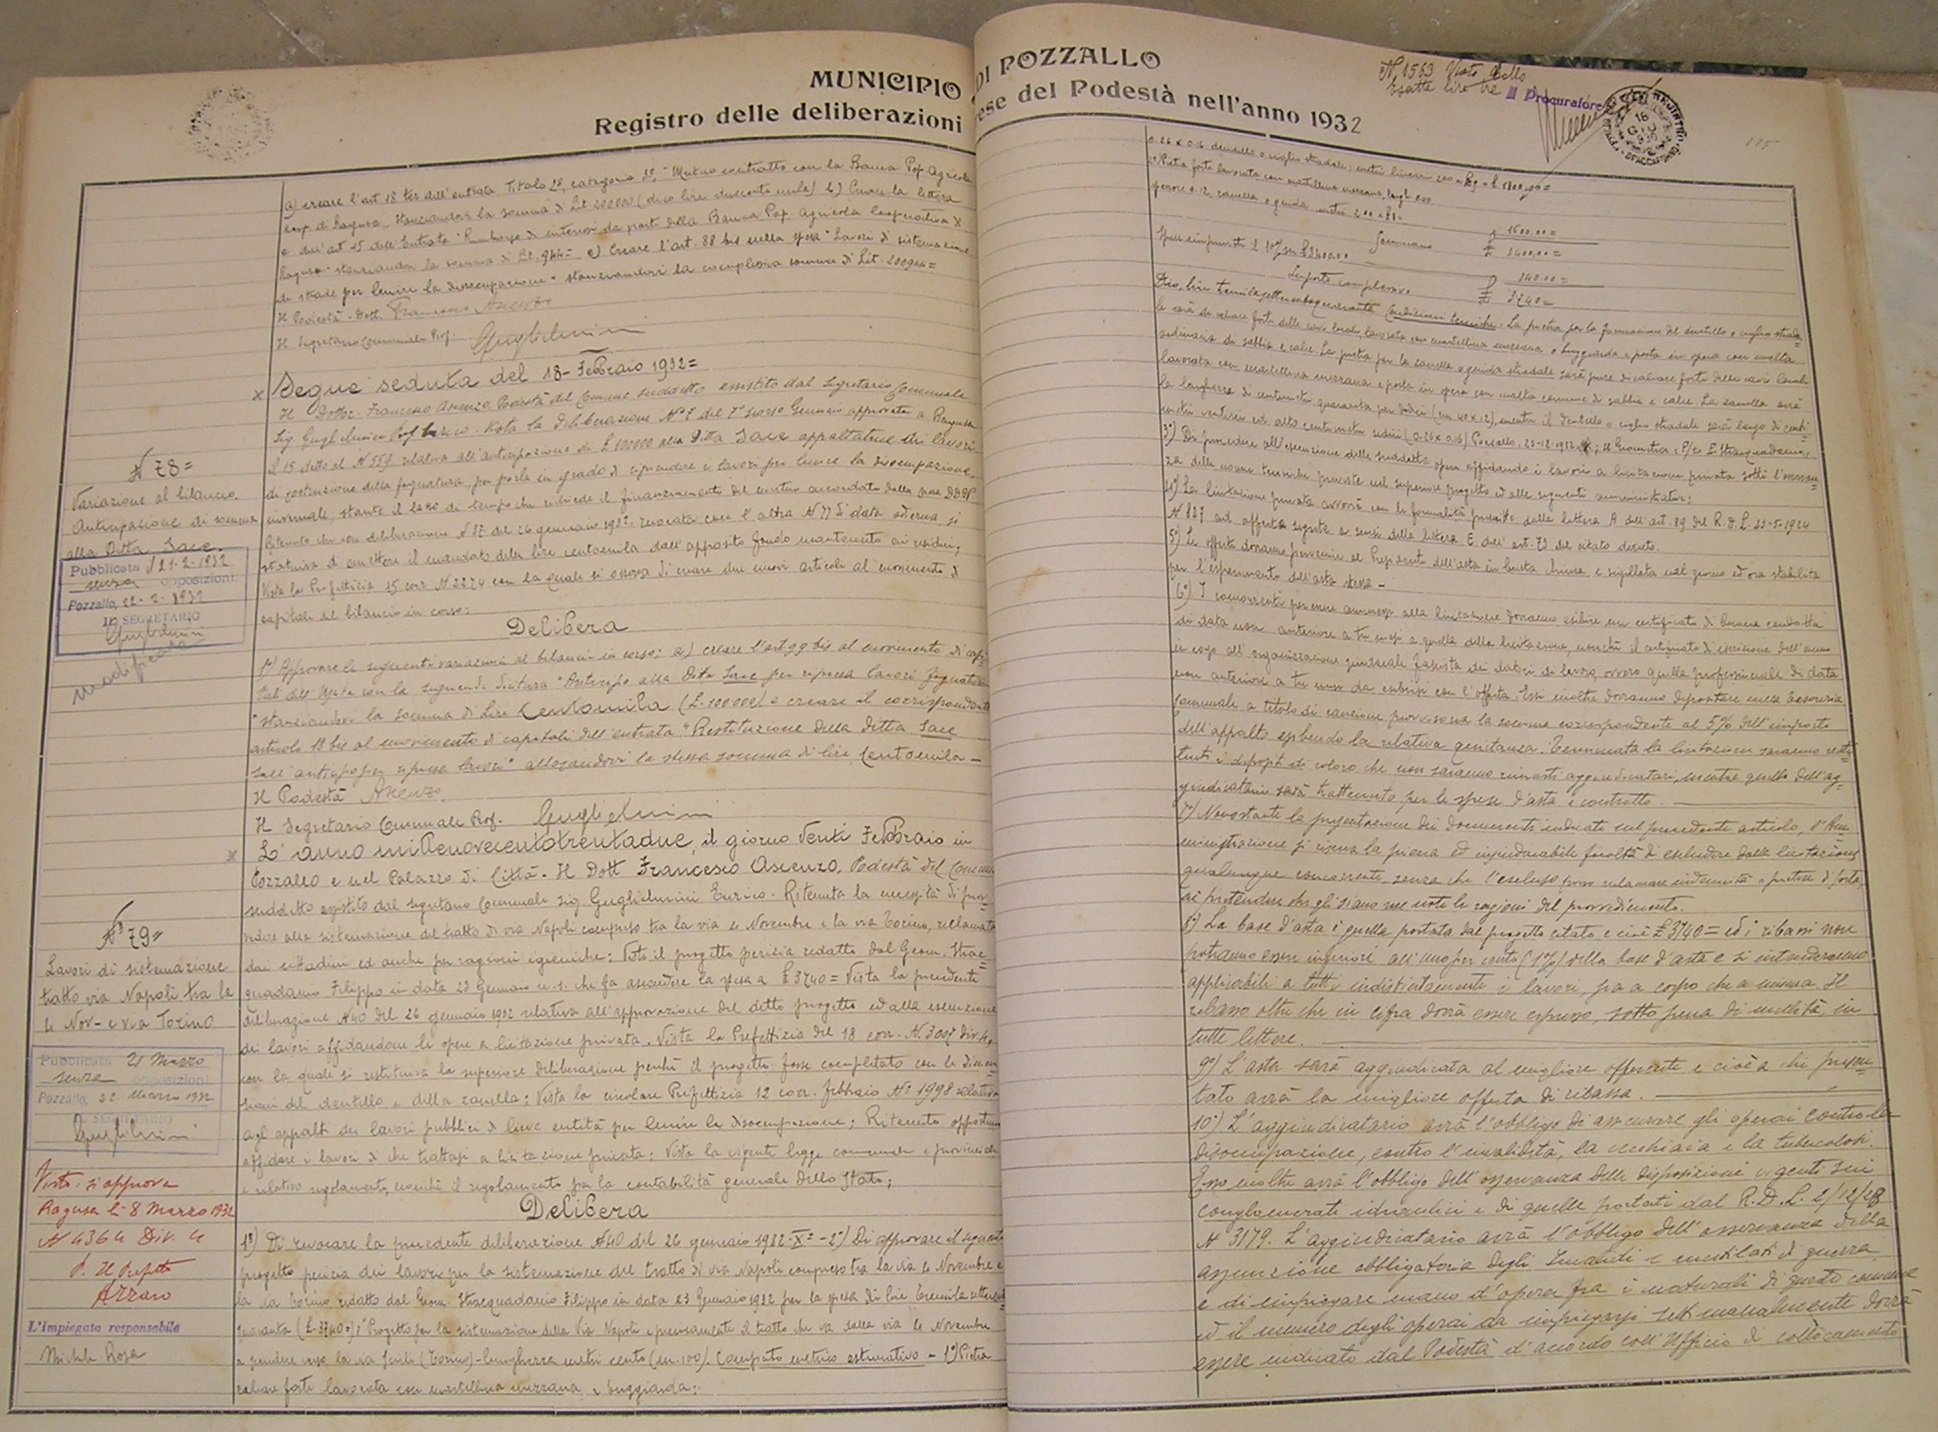 MUNICIPIO DI POZZALLO
Registro delle deliberazioni ese del Podestà nell'anno 1932
a) creare l'art 18 ter dell'entrata Titolo 2º, categoria 3ª, "Mutuo contratto con la Banca Pop. Agricola
Coop. di Ragusa, stanziandovi la somma di Lit 200000 (dico lire duecento mila)
e sull'art 15 dell'Entrata di interessi da parte della Banca Pop. Agricola Cooperativa di
Ragusa" stanziandovi la somma di Lit. 944= c) Creare l'art. 88 bis nella spesa "Lavori di sistemazione
di strade per lenire la disoccupazione" stanziandovi la complessiva somma di Lit. 200944=
Il Podestà Dott. Francesco Ascenzo
Il Segretario Comunale Prof. Guglielmini
Segue seduta del 18 - Febbraio 1932=
Il Dottor Francesco Ascenzo Podestà del Comune suddetto assistito dal Segretario Comunale
Sig. Guglielmini Prof. Enrico. Vista la deliberazione Nº 7 del 7 Gennaio approvata a Ragusa
il 15 detto al N 559 relativa all'anticipazione di L 100000 alla Ditta Sace appaltatrice dei lavori
di costruzione della fognatura, per porla in grado di riprendere i lavori per lenire la disoccupazione
invernale, stante il lasso di tempo che richiede il finanziamento del mutuo accordato dalla Cassa DD.PP.
Ritenuto che con deliberazione N 37 del 26 gennaio 1932 revocata con l'altra N 77 di data odierna, si
statuiva di emettere il mandato delle lire centomila dall'apposito fondo mantenuto ai residui;
Vista la Prefettizia 15 corr. N 2274 con la quale si osserva di creare due nuovi articoli al movimento di
capitali del bilancio in corso:
Delibera
1º) Approvare le seguenti variazioni al bilancio in corso: a) creare l'art 99 bis al movimento di capi-
tali dell'uscita con la seguente dicitura "Anticipo alla Ditta Sace per ripresa lavori fognatura
"stanziandovi la somma di Lire Centomila (L. 100000) e creare il corrispondente
articolo 18 bis al movimento di capitali dell'entrata "Restituzione della Ditta Sace
sull'anticipo per ripresa lavori" allogandovi la stessa somma di lire Centomila -
Il Podestà Ascenzo
Il Segretario Comunale Prof. Guglielmini
L'anno millenovecentotrentadue, il giorno venti Febbraio in
Pozzallo e nel Palazzo di Città. Il Dott Francesco Ascenzo, Podestà del Comune
suddetto assistito dal segretario Comunale sig. Guglielmini Enrico. Ritenuta la necessità di prov
vedere alla sistemazione del tratto di via Napoli compreso tra la via 4 Novembre e la via Torino, reclamata
dai cittadini ed anche per ragioni igieniche: Visto il progetto perizia redatto dal Geom. Strac=
quadanio Filippo in data 23 Gennaio u.s. che fa ascendere la spesa a £ 3740= Vista la precedente
deliberazione N 40 del 26 gennaio 1932 relativa all'approvazione del detto progetto ed alla esecuzione
dei lavori affidandone le opere a licitazione privata. Vista la Prefettizia del 18 corr. N. Div. 4,
con la quale si restituiva la superiore deliberazione perché il progetto fosse completato con le dimen
sioni del dentello e della zanella; Vista la circolare Prefettizia 12 corr. febbraio Nº 1998 relativa
agli appalti dei lavori pubblici di lieve entità per lenire la disoccupazione; Ritenuto opportuno
affidare i lavori di che trattasi a licitazione privata: Vista la vigente legge comunale e provinciale
e relativo regolamento, nonché il regolamento per la contabilità generale dello Stato;
Delibera
1º) Di revocare la precedente deliberazione N 40 del 26 gennaio 1932-X= - 2º) Di approvare il seguente
progetto perizia dei lavori per la sistemazione del tratto di via Napoli compreso tra la via 4 Novembre e
la via Torino redatto dal Geom. Stracquadanio Filippo in data 23 Gennaio 1932 per la spesa di lire Tremila settecento
quaranta (L. 3740=) 1º Progetto per la sistemazione della Via Napoli e precisamente il tratto che va dalla via 4 Novembre
a pendere verso la via (Torino) - lunghezza metri cento (m. 100). Computo metrico estimativo - 1º) Pietra
calcare forte lavorata con martellina mezzana e bugiarda;
N 78=
Variazione al bilancio.
Anticipazione di somma
alla Ditta Sace.
Pubblicata il 21-2-1932
senza opposizioni.
Pozzallo, 22-2-1932
IL SEGRETARIO
Guglielmini
modificata
Nº 79=
Lavori di sistemazione
tratto via Napoli tra la
4 Nov. e via Torino
Pubblicata 21 Marzo
senza opposizioni
Pozzallo, 22 Marzo 1932
IL SEGRETARIO
Guglielmini
Visto: si approva
Ragusa li 8 Marzo 1932
N 4364 Div. 4
p. Il Prefetto
Azzaro
L'Impiegato responsabile
Michele Rosa
N. 1563 Visto Bollo
Esatte lire tre
Il Procuratore
16 GIU
0.26 x 0.16 dentello o ciglio stradale; metri lineari 200
2º Pietra forte lavorata con martellina mezzana, largh 0.40
spessore 0.12, zanella o guida metri 200
Sommano £ 1600.00=
£ 3400,00=
Spese impreviste il 10% su £ 3400.00 £ 340.00=
Importo complessivo £ 3740=
Dico, lire tremilasettecentoquaranta. Condizioni tecniche: La pietra per la formazione del dentello o ciglio strada=
le sarà di calcare forte delle cave locali, lavorata con martellina mezzana e bugiarda e posta in opera con malta
ordinaria di sabbia e calce. La pietra per la zanella o guida stradale sarà pure di calcare forte delle cave locali
lavorata con martellina mezzana e posta in opera con malta comune di sabbia e calce. La zanella avrà
la larghezza di centimetri quaranta per dodici (cm 40 x 12), mentre il dentello o ciglio stradale sarà largo di centi-
metri ventisei ed alto centimetri sedici (0.26 x 0.16) Pozzallo, Il Geometra: F/to F. Stracquadanio,
3º) Di procedere all'esecuzione delle suddette opere affidando i lavori a licitazione privata sotto l'osservan-
za delle norme tecniche previste nel superiore progetto ed alle seguenti amministrative:
4º) La licitazione privata avverrà con le formalità previste dalla lettera A dell'art. 89 del R.D.L. 23-5-1924
N 827 ad offerta segreta ai sensi della lettera C dell'art. 73 del citato decreto.
5º) Le offerte dovranno pervenire al Presidente dell'asta in busta chiusa e sigillata nel giorno ed ora stabilita
per l'esperimento dell'asta stessa -
6º) I concorrenti per essere ammessi alla licitazione dovranno esibire un certificato di buona condotta
di data non anteriore a tre mesi a quella della licitazione, nonché il certificato di iscrizione dell'anno
in corso all'organizzazione sindacale fascista dei datori di lavoro, ovvero quella professionale di data
non anteriore a tre mesi da esibirsi con l'offerta. Essi inoltre dovranno depositare nella tesoreria
comunale a titolo di cauzione provvisoria la somma corrispondente al 5% dell'importo
dell'appalto esibendo la relativa quietanza. Terminata la licitazione saranno resti-
tuiti i depositi di coloro che non saranno rimasti aggiudicatari, mentre quello dell'ag-
giudicatario sarà trattenuto per le spese d'asta e contratto.
7º) Nonostante la presentazione dei documenti indicati nel precedente articolo, l'Am-
ministrazione si riserva la piena ed insindacabile facoltà di escludere dalla licitazione
qualunque concorrente, senza che l'escluso possa reclamare indennità o pretese di sorta,
né pretendere che gli siano rese note le ragioni del provvedimento.
8º) La base d'asta è quella portata dal progetto citato e cioè £ 3740= ed i ribassi non
potranno essere inferiori all'uno per cento (1%) della base d'asta e si intenderanno
applicabili a tutti indistintamente i lavori, sia a corpo che a misura. Il
ribasso oltre che in cifra dovrà essere espresso, sotto pena di nullità, in
tutte lettere.
9º) L'asta sarà aggiudicata al migliore offerente e cioè a chi presen-
tato avrà la migliore offerta di ribasso.
10º) L'aggiudicatario avrà l'obbligo di assicurare gli operai contro la
disoccupazione, contro l'invalidità, la vecchiaia e la tubercolosi.
Esso inoltre avrà l'obbligo dell'osservanza delle disposizioni vigenti sui
conglomerati idraulici e di quelle portati dal R.D.L. 4/12/28
N 3179. L'aggiudicatario avrà l'obbligo dell'osservanza della
assunzione obbligatoria degli invalidi e mutilati di guerra
e di impiegare mano d'opera fra i naturali di questo comune
ed il numero degli operai da impiegarsi settimanalmente dovrà
essere indicato dal Podestà d'accordo coll'Ufficio di collocamento